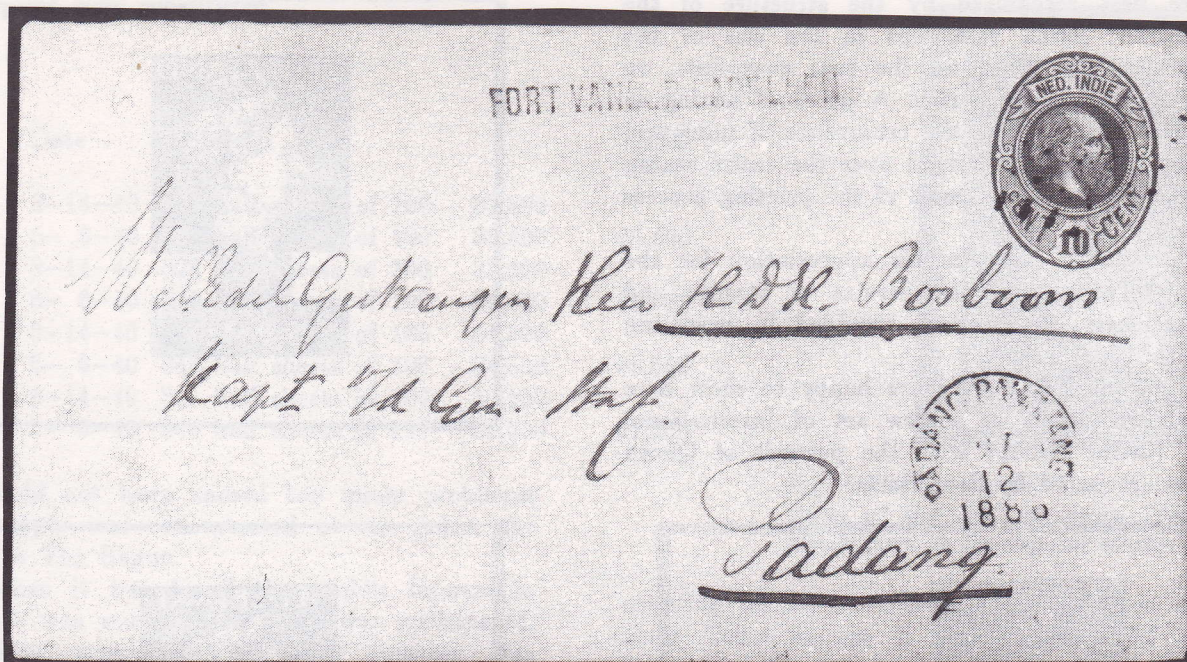 FORT VAN DER CAPELLEN
NED. INDIE
CENT 10 CENT
WelEdelGestrengen Heer H.D.H. Bosboom
Kapt. v/d Gen. Staf
PADANG-PANDJANG
12
188
Padang